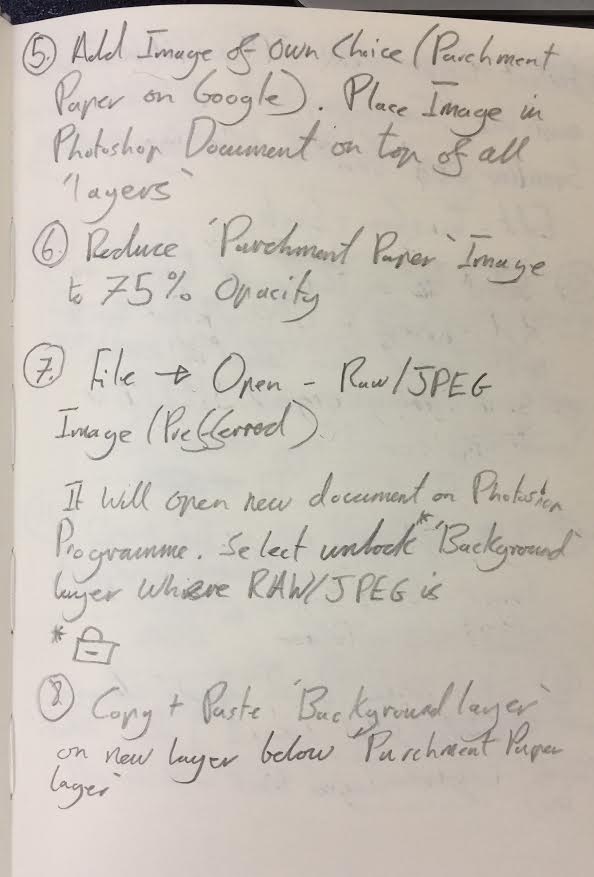 5. Add Image of own Choice (Parchment
Paper on Google). Place Image in
Photoshop Document on top of all
'layers'
6. Reduce 'Parchment Paper' Image
to 75% Opacity
7. File → Open - Raw/JPEG
Image (Prefferred)
It will open new document on Photoshop
Programme. Select unlock* 'Background'
layer where RAW/JPEG is
*
8. Copy + Paste 'Background layer'
on new layer below 'Parchment Paper
layer'